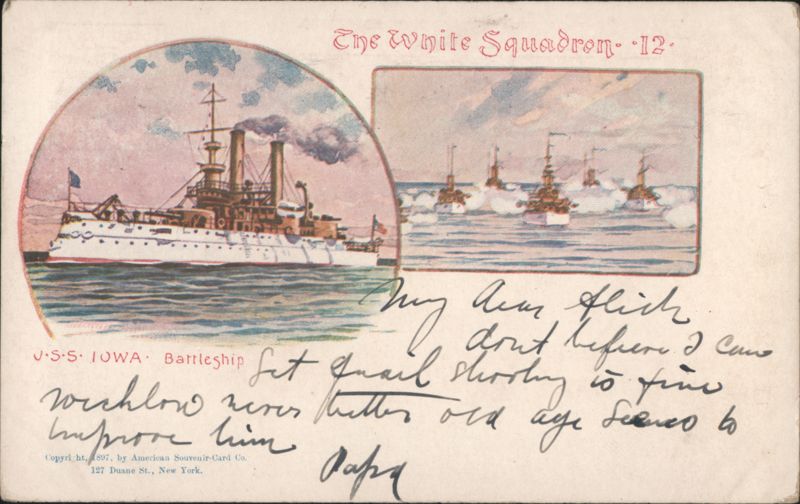 The White Squadron. 12.
U.S.S. IOWA. Battleship
My dear
dont believe I can
Get Quail shooting is fine
never better old age Seems to
improve him
Papa
Copyright, 1897, by American Souvenir-Card Co.
127 Duane St., New York.